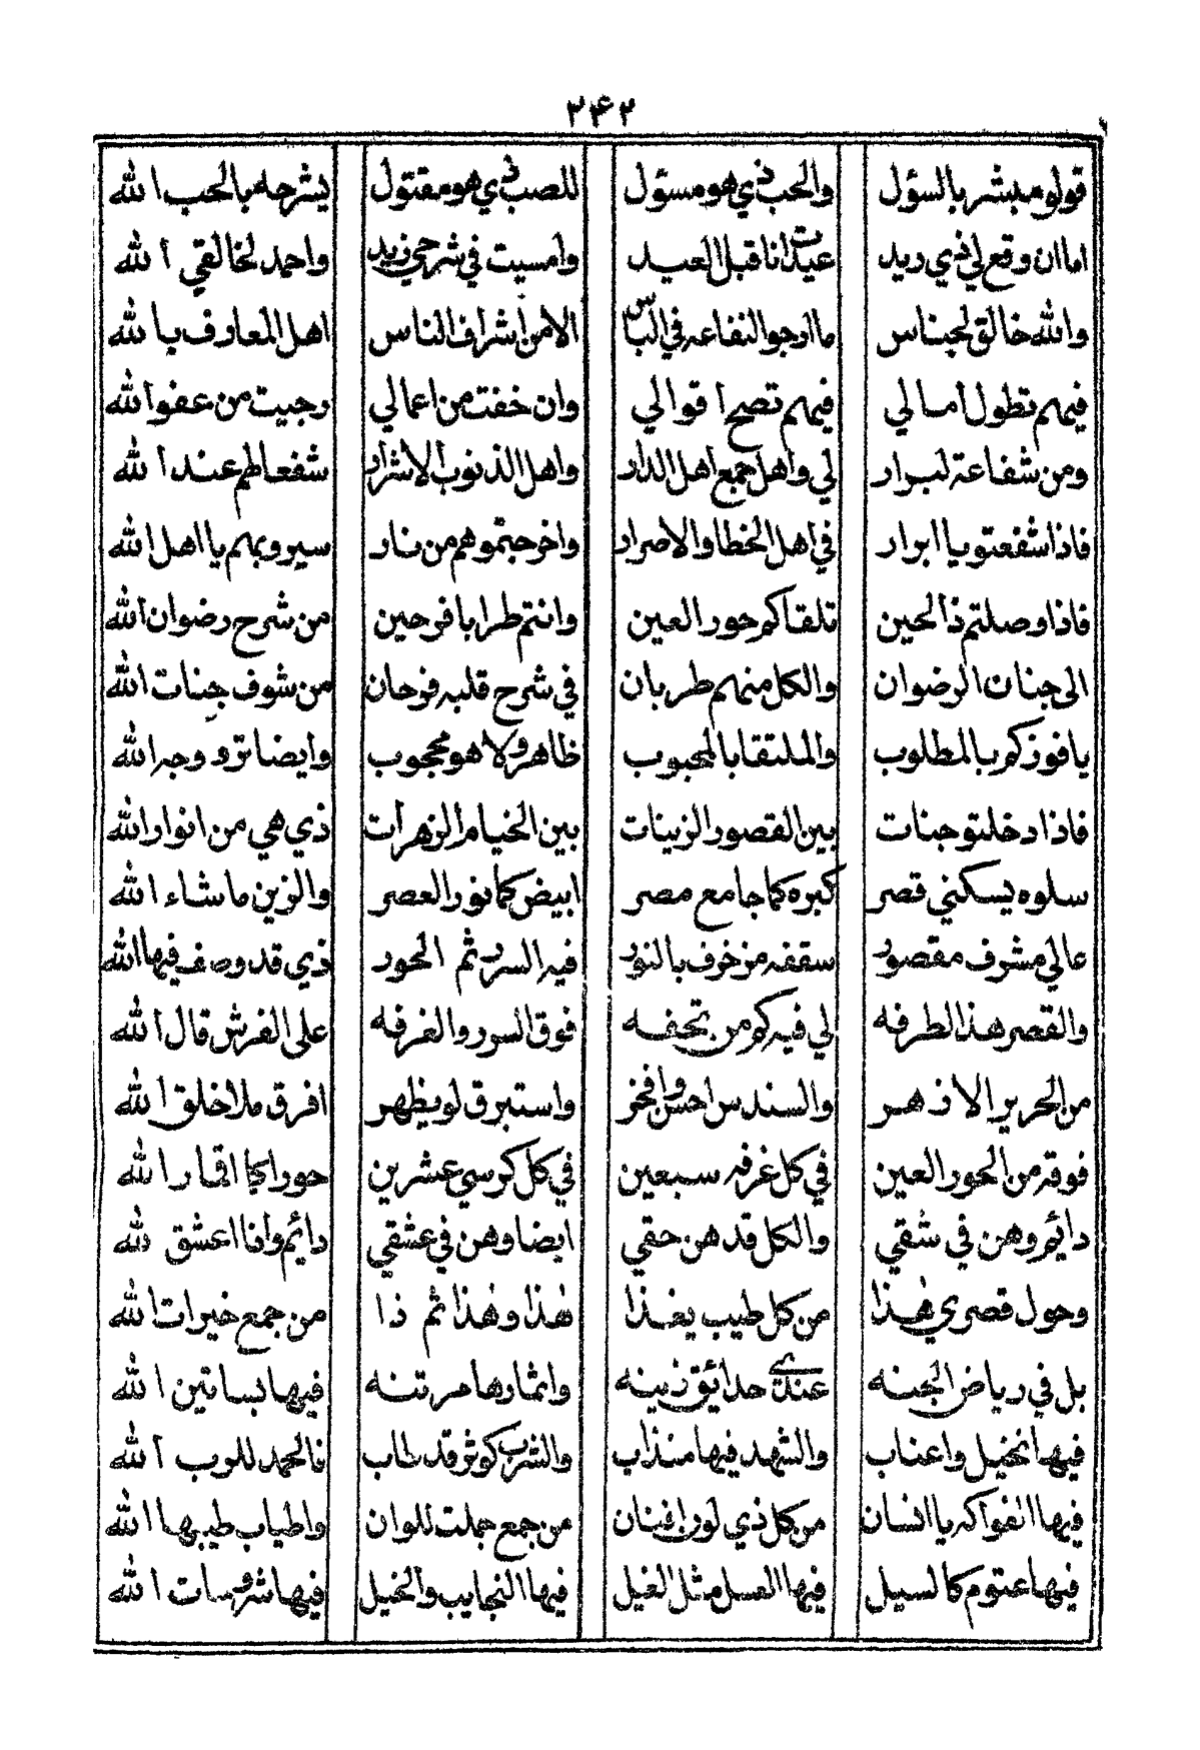 ٢٤٢
قولو مبشر بالسؤل والحب ذي هو مسؤل للصب ذي هو مقتول يشرجه بالحب الله
اما ان وقع لي ذي ريد عيدت انا قبل العيد وامسيت في شرحي زيد واحمد لخالقي الله
والله خالق لجناس ما ارجو النفاعه في الباس الا من اشراف الناس اهل المعارف بالله
فيهم تطول امالي فيهم تصح اقوالي وان خفت من اعمالي رجيت من عفو الله
ومن شفاعة لبرار لي واهل جمع اهل الدار واهل الذنوب الاشرار شفعا لهم عند الله
فاذا شفعتو يا ابرار في اهل الخطا والاصرار واخرجتموهم من نار سيروبهم يا اهل الله
فاذا وصلتم ذا الحين تلقاكم حور العين وانتم طرابا فرحين من شرح رضوان الله
الى جنان الرضوان والكل منهم طربان في شرح قلبه فرحان من شوف جنات الله
يا فوزكم بالمطلوب والملتقا بالمحبوب ظاهر ولا هو محجوب وايضا ترو وجه الله
فاذا دخلتو جنات بين القصور الزينات بين الخيام الزهرات ذي هي من انوار الله
سلوه يسكنني قصر كبره كما جامع مصر ابيض كما نور العصر والزين ما شاء الله
عالي مشرف مقصور سقفه مزخرف بالنور فيه السرر ثم الحور ذي قد وصف فيها الله
والقصر هذا الطرفه لي فيه كم من تحفه فوق السرر والغرفه على الفرش قال الله
من الحرير الازهر والسندس احسن وافخر واستبرق لو يظهر افرق ملا خلق الله
فوقه من الحور العين في كل غرفه سبعين في كل كرسي عشرين حورا كما اقمار الله
دائم وهن في شقي والكل قد هن حقي ايضا وهن في عشقي دائم وانا اعشق لله
وحول قصري هذا من كل طيب يغذا هذا وهذا ثم ذا من جمع خيرات الله
بل في رياض الجنه عندي حدائق زينه واثمارها مرتنه فيها بساتين الله
فيها نخيل واعناب والشهد فيها منذاب والشرب كوثر قد طاب نالحمد للرب الله
فيها الفواكه يا انسان من كل ذي لون افنان من جمع جملت للوان واطياب طيبها الله
فيها عتوم كالسيل فيها العسل مثل الغيل فيها النجايب والخيل فيها شروسات الله